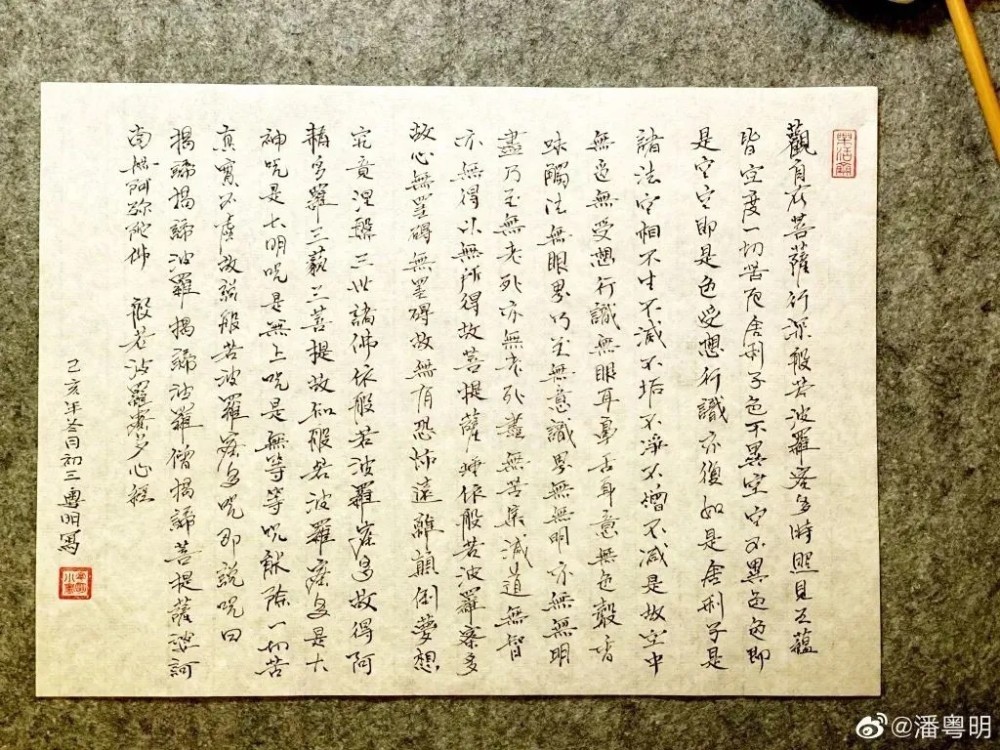 觀自在菩薩行深般若波羅密多時照見五蘊
皆空度一切苦厄舍利子色不異空空不異色色即
是空空即是色受想行識亦復如是舍利子是
諸法空相不生不滅不垢不淨不增不減是故空中
無色無受想行識無眼耳鼻舌身意無色聲香
味觸法無眼界乃至無意識界無無明亦無無明
盡乃至無老死亦無老死盡無苦集滅道無智
亦無得以無所得故菩提薩埵依般若波羅蜜多
故心無罣礙無罣礙故無有恐怖遠離顛倒夢想
究竟涅槃三世諸佛依般若波羅蜜多故得阿
耨多羅三藐三菩提故知般若波羅蜜多是大
神咒是大明咒是無上咒是無等等咒能除一切苦
真實不虛故說般若波羅蜜多咒即說咒曰
揭諦揭諦波羅揭諦波羅僧揭諦菩提薩婆訶
南無阿彌陀佛 般若波羅蜜多心經
己亥年冬月初三粵明寫
@潘粤明